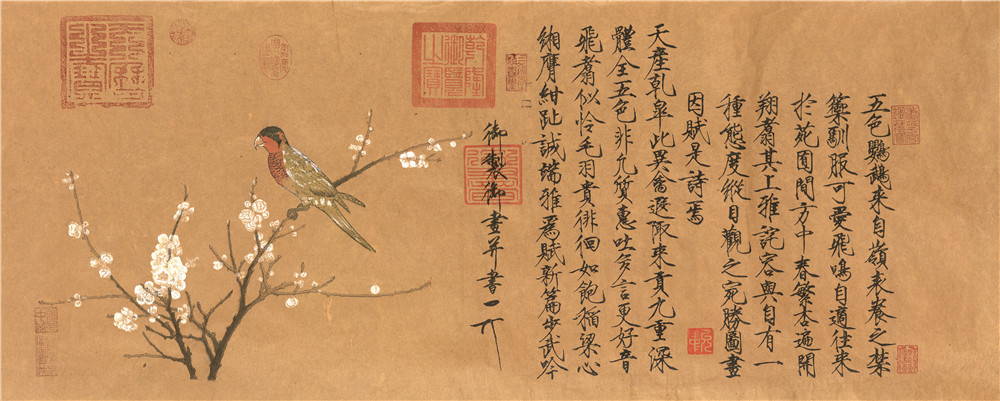 五色鸚鵡來自嶺表養之禁
籞馴服可愛飛鳴自適往來
於苑囿間方中春繁杏遍開
翔翥其上雅詫容與自有一
種態度縱目觀之宛勝圖畫
因賦是詩焉
天產乾皋此異禽遐陬來貢九重深
體全五色非凡質惠吐多言更好音
飛翥似怜毛羽貴徘徊如飽稻梁心
緗膺紺趾誠端雅爲賦新篇步武吟
御製御畫并書
乾隆御覽之寶